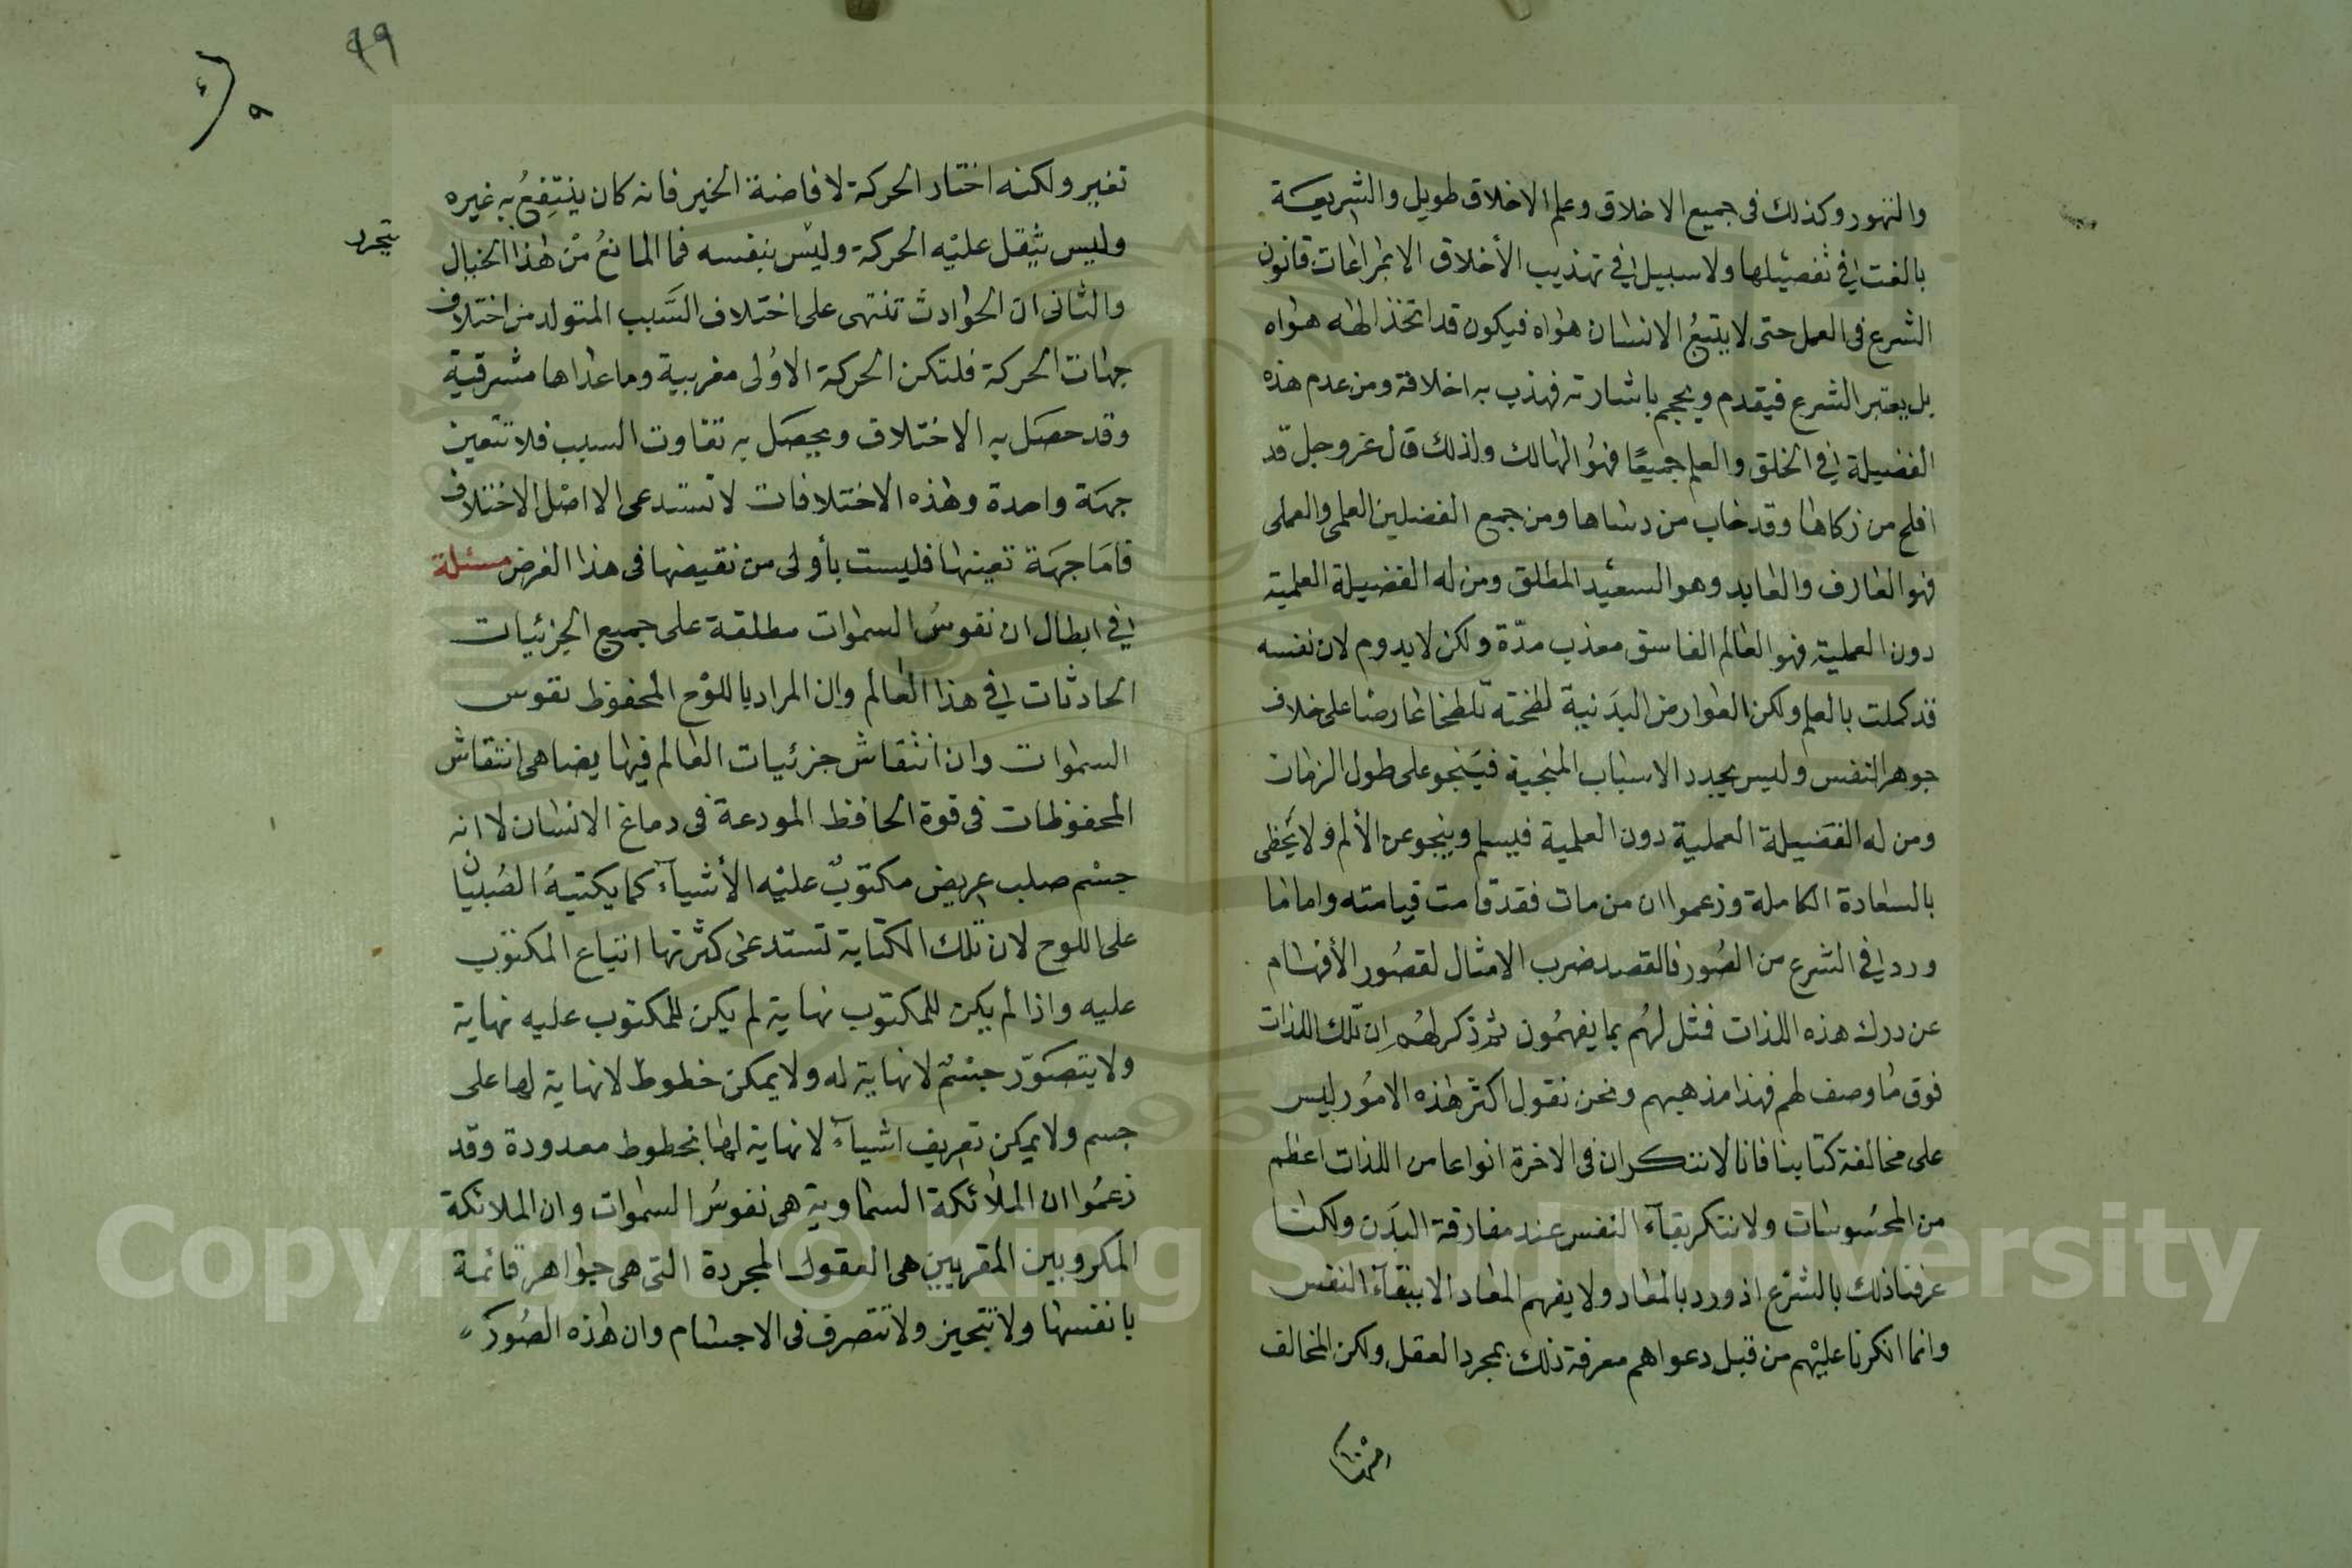 والتهور وكذلك فى جميع الاخلاق وعلم الاخلاق طويل والشريعة
بالغت فى تفصيلها ولا سبيل فى تهذيب الأخلاق الا بمراعات قانون
الشرع فى العمل حتى لا يتبع الانسان هواه فيكون قد اتخذ الهه هواه
بل يعتبر الشرع فيقدم ويحجم باشارته فهذب به اخلاقه ومن عدم هذه
الفضيلة فى الخلق والعلم جميعًا فهو الهالك ولذلك قال عز وجل قد
افلح من زكاها وقد خاب من دساها ومن جمع الفضلين العلمى والعملى
فهو العارف والعابد وهو السعيد المطلق ومن له الفضيلة العلمية
دون العملية فهو العالم الفاسق معذب مدّة ولكن لا يدوم لان نفسه
قد كملت بالعلم ولكن العوارض البدنية لطخته تلطخا عارضا على خلاف
جوهر النفس وليس يجدد الاسباب المنجية فينجو على طول الزمان
ومن له الفضيلة العملية دون العلمية فيسلم وينجو عن الألم ولا يحظى
بالسعادة الكاملة وزعموا ان من مات فقد قامت قيامته واما ما
ورد فى الشرع من الصور فالقصد ضرب الامثال لقصور الأفهام
عن درك هذه اللذات فمثل لهم بما يفهمون ثم ذكر لهم ان تلك اللذات
فوق ما وصف لهم فهذا مذهبهم ونحن نقول اكثر هذه الامور ليس
على مخالفة كتابنا فانا لا ننكر ان فى الاخرة انواعا من اللذات اعظم
من المحسوسات ولا ننكر بقآء النفس عند مفارقة البدن ولكنا
عرفنا ذلك بالشرع اذ ورد بالمعاد ولا يفهم المعاد الا ببقآء النفس
وانما انكرنا عليهم من قبل دعواهم معرفة ذلك بمجرد العقل ولكن المخالف
٩٩
تغير ولكنه اختار الحركة لافاضة الخير فانه كان ينتفع به غيره
وليس يثقل عليه الحركة وليس بنفسه فما المانع من هذا الخيال
والثانى ان الحوادث تنتهى على اختلاف السبب المتولد من اختلاف
جهات الحركة فلتكن الحركة الاولى مغربية وما عداها مشرقية
وقد حصل به الاختلاف ويحصل به تفاوت السبب فلا تتعين
جهة واحدة وهذه الاختلافات لا تستدعى الا اصل الاختلاف
فاما جهة تعينها فليست بأولى من نقيضها فى هذا الغرض مسئلة
فى ابطال ان نفوس السموات مطلقة على جميع الجزئيات
الحادثات فى هذا العالم وان المراد باللوح المحفوظ نفوس
السموات وان انتقاش جزئيات العالم فيها يضاهى انتقاش
المحفوظات فى قوة الحافظ المودعة فى دماغ الانسان لا انه
جسم صلب عريض مكتوب عليه الأشيآء كما يكتبه الصبيان
على اللوح لان تلك الكتابة تستدعى كثرتها اتباع المكتوب
عليه واذا لم يكن للمكتوب نهاية لم يكن للمكتوب عليه نهاية
ولا يتصور جسم لا نهاية له ولا يمكن خطوط لا نهاية لها على
جسم ولا يمكن تعريف اشيآء لا نهاية لها بخطوط معدودة وقد
زعموا ان الملائكة السماوية هى نفوس السموات وان الملائكة
المكروبين المقربين هى العقول المجردة التى هى جواهر قائمة
بانفسها ولا تتحيز ولا تتصرف فى الاجسام وان هذه الصور
Copyright © King Saud University